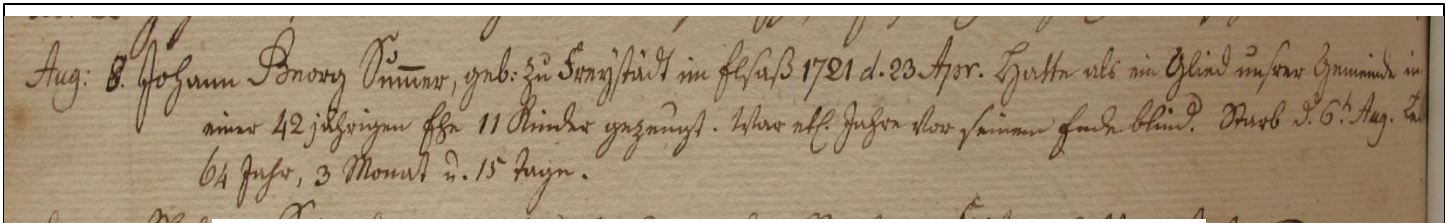 Aug: 8. Johann Georg Summer, geb: zu Freystädt im Elsaß 1721 d. 23 Apr. Hatte als ein Glied unsrer Gemeinde in
einer 42 jährigen Ehe 11 Kinder gezeugt. War etl. Jahre vor seinem Ende blind. Starb d. 6t Aug.
64 Jahr, 3 Monat u. 15 Tage.